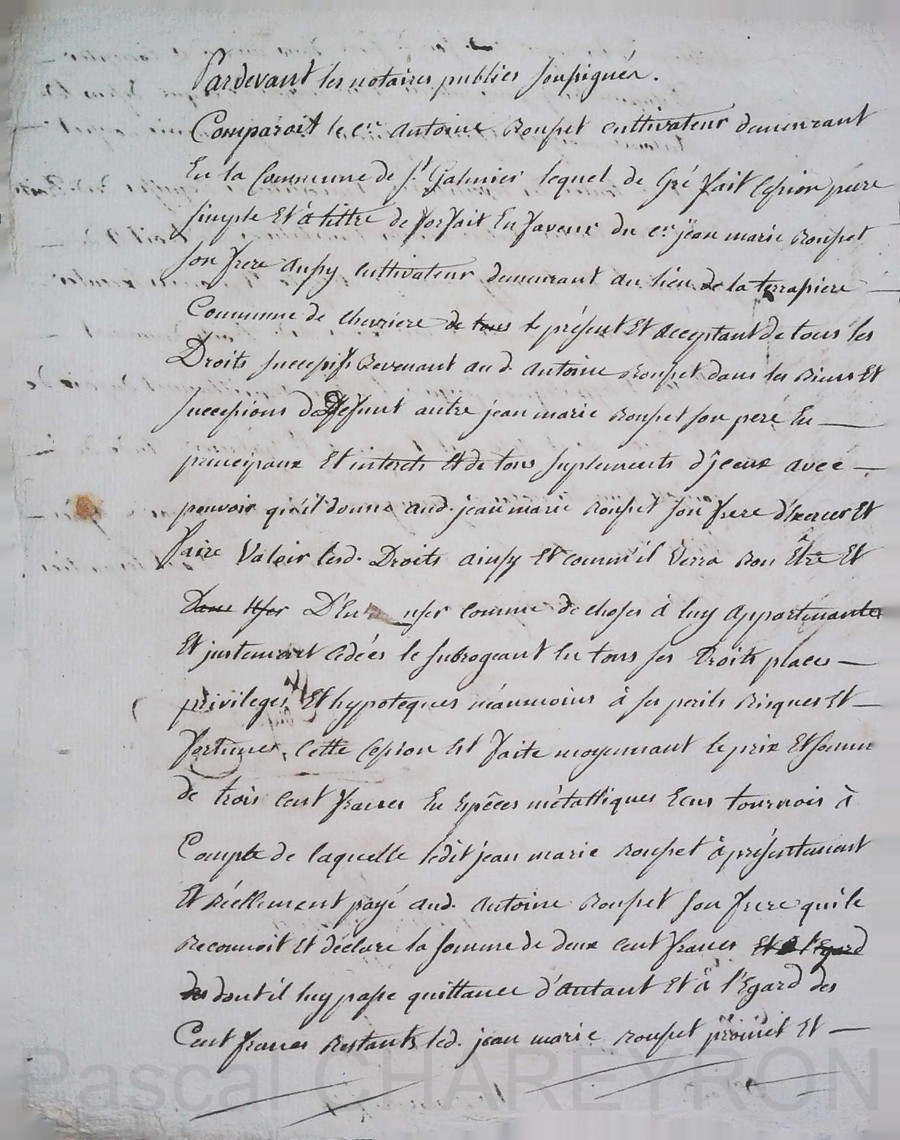 Pardevant les notaires publics soussignés.
Comparoit le c.en Antoine Rousset cultivateur demeurant
En la Commune de S.t Galmier lequel de Gré fait Cession pure
simple Et à tittre de forfait En faveur du c.en jean marie Rousset
son frere aussy cultivateur demeurant au lieu de la terrapiere
Commune de chevriere de tous le présent Et acceptant de tous les
Droits successifs Revenant aud. antoine rousset dans les Biens Et
successions de deffunt autre jean marie Rousset son peré En
principaux Et interets Et de tous suplements d'jceux avec
pouvoir qu'il donne aud. jean marie rousset son frere d'exercer Et
faire Valoir lesd. Droits ainsy Et comm'il Verra Bon Être Et
D'En user comme de choses à luy appartenantes
Et justement cédées le subrogeant En tous ses Droits places
privileges Et hypoteques néanmoins à ses perils Risques Et
fortune, Cette Cession Est faite moyennant le prix Et somme
de trois Cent francs En Espèces métalliques Ecus tournois à
Compte de laquelle ledit jean marie rousset à présentement
Et Réellement payé aud. Antoine Rousset son frere qui le
Reconnoit Et déclare la somme de deux cent francs Et à l'Egard
des dont il luy passe quittance d'autant Et à l'Egard des
Cent francs Restants led. jean marie rousset promet Et
Pascal CHAREYRON